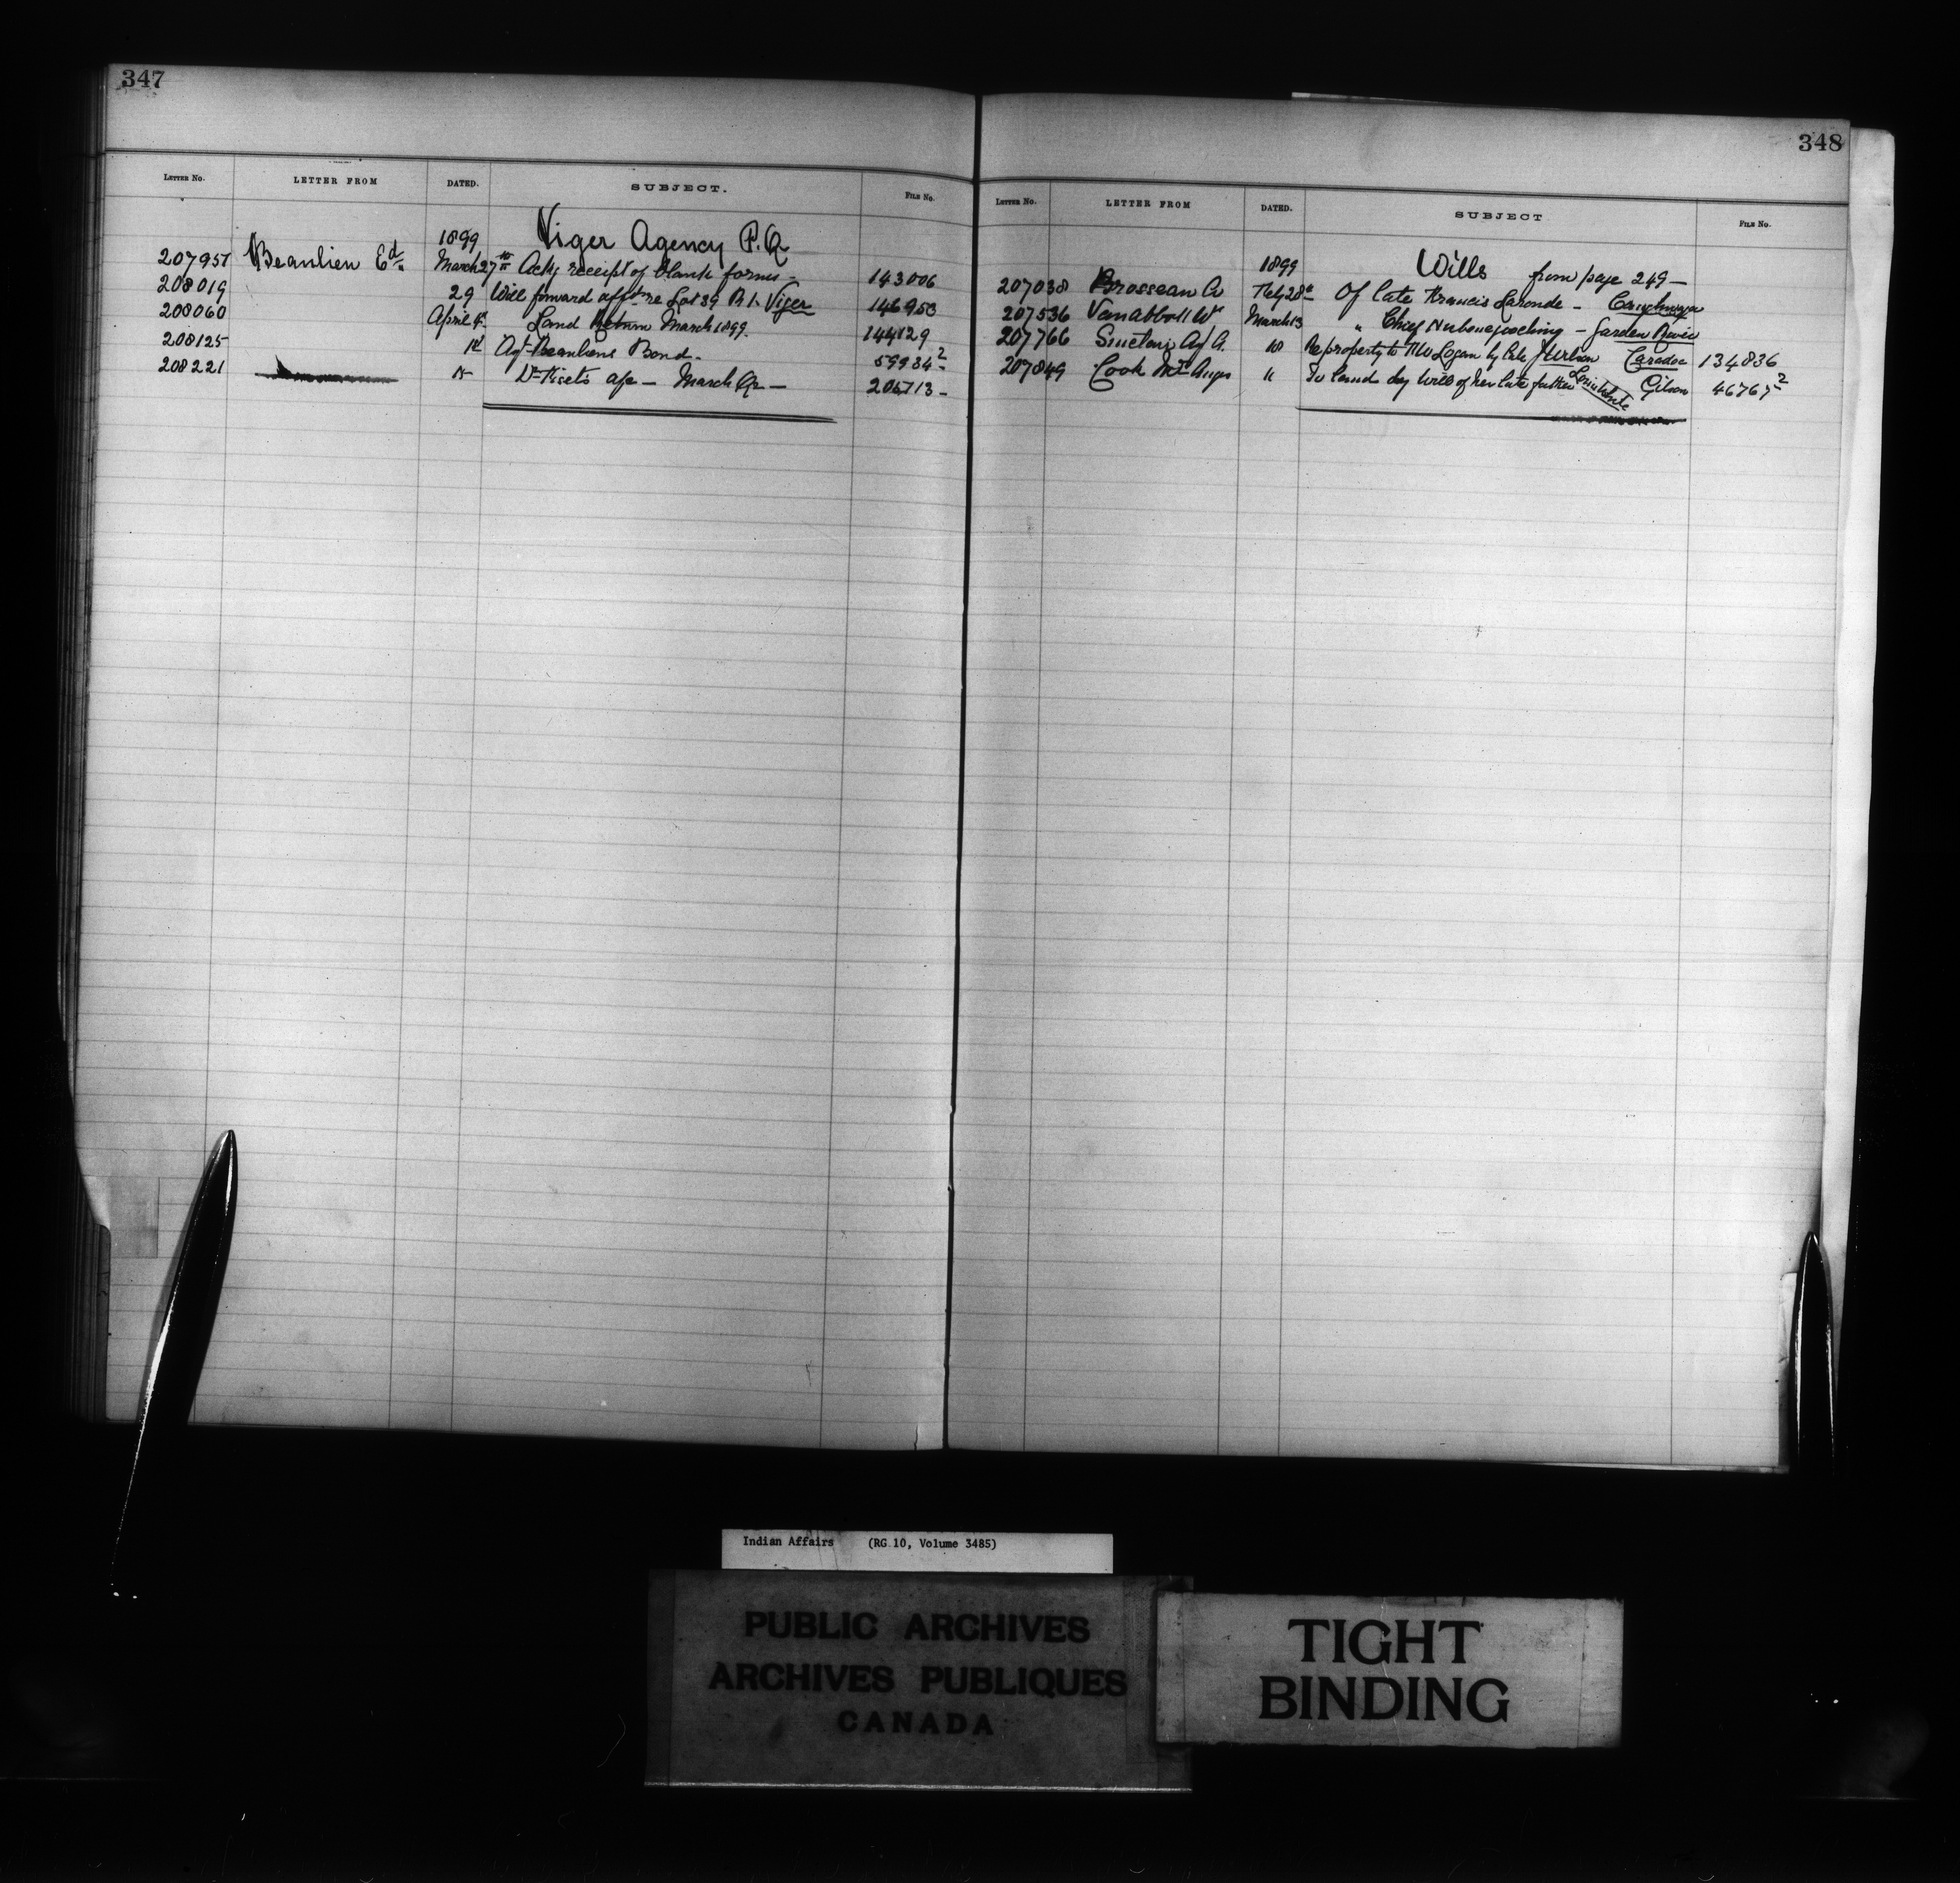 347
LETTER NO. LETTER FROM DATED. SUBJECT. FILE No.
1899 Viger Agency P.Q
207951 Beaulieu Ed. March 27th Ackg receipt of blank forms - 143006
208019 29 Will forward afft re Lot 39 R 1. Viger 146950
208060 April 4 Land Return March 1899. 144129
208125 Agt Beaulieus Bond. 59934-2
208221 15 Dr a/c - March Qr - 206713-
348
LETTER NO. LETTER FROM DATED. SUBJECT FILE No.
1899 Wills from page 249-
207038 Brosseau A Feby 28th Of late Francis Laronde - Caughnawaga
207536 Van abbott Wm March 13 " Chief - Garden River
207766 Sinclair A 18 Re property to Logan by late Caradoc 134836
207849 Cook Mrs 11 To land by will of her late father Gibson 46767-2
Indian Affairs (RG 10, Volume 3485)
PUBLIC ARCHIVES
ARCHIVES PUBLIQUES
CANADA
TIGHT
BINDING